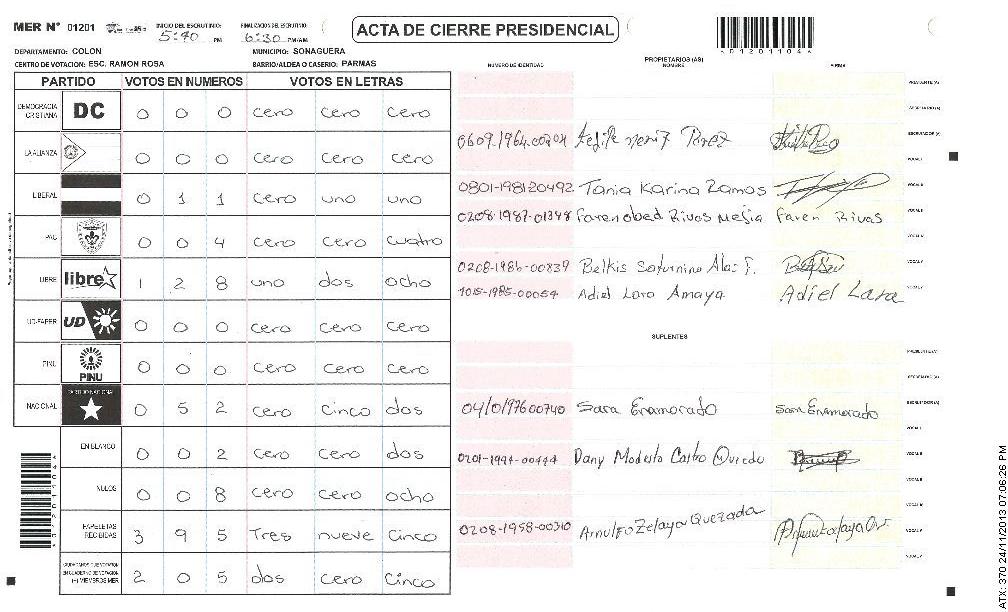 MER N° 01201 INICIO DEL ESCRUTINIO: 5:40 PM FINALIZACION DEL ESCRUTINIO: 6:30 PM/AM
ACTA DE CIERRE PRESIDENCIAL
DEPARTAMENTO: COLON MUNICIPIO: SONAGUERA
CENTRO DE VOTACION: ESC. RAMON ROSA BARRIO/ALDEA O CASERIO: PARMAS
PARTIDO VOTOS EN NUMEROS VOTOS EN LETRAS
DEMOCRACIA CRISTIANA DC 0 0 0 cero cero cero
LA ALIANZA 0 0 0 cero cero cero
LIBERAL 0 1 1 cero uno uno
PAC 0 0 4 cero cero cuatro
LIBRE libre 1 2 8 uno dos ocho
UD-FAPER UD 0 0 0 cero cero cero
PINU PINU 0 0 0 cero cero cero
NACIONAL PARTIDO NACIONAL 0 5 2 cero cinco dos
EN BLANCO 0 0 2 cero cero dos
NULOS 0 0 8 cero cero ocho
PAPELETAS RECIBIDAS 3 9 5 Tres nueve cinco
CIUDADANOS QUE VOTARON EN CUADERNO DE VOTACION (+) MIEMBROS MER 2 0 5 dos cero cinco
PROPIETARIOS (AS)
NUMERO DE IDENTIDAD NOMBRE FIRMA
PRESIDENTE (A)
SECRETARIO (A)
ESCRUTADOR (A)
0801-1981-20492 Tania Karina Ramos
0208-1987-01348 Faren obed Rivas Mejia Faren Rivas
0208-1986-00839 Belkis Saturnino Alas F.
1015-1985-00054 Adiel Lara Amaya Adiel Lara
SUPLENTES
PRESIDENTE (A)
SECRETARIO (A)
ESCRUTADOR (A)
Sara Enamorado Sara Enamorado
0201-1994-00444 Dany Modesto Castro Oviedo
0208-1958-00310 Arnulfo Zelaya Quezada
ATX: 370 24/11/2013 07:06:26 PM